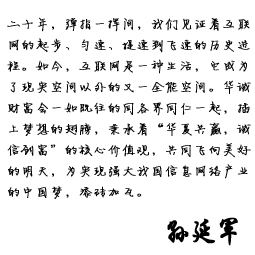 二十年，弹指一挥间，我们见证着互联
网的起步、匀速、提速到飞速的历史进
程。如今，互联网是一种生活，它成为
了现实空间以外的又一全能空间。华诚
财富会一如既往的同各界同仁一起，插
上梦想的翅膀，秉承着“华夏共赢，诚
信创富”的核心价值观，共同飞向美好
的明天，为实现强大我国信息网络产业
的中国梦，添砖加瓦。
孙延军